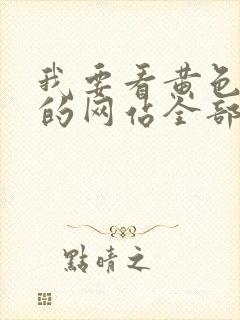 我要看黄色
的网站全部
點晴之